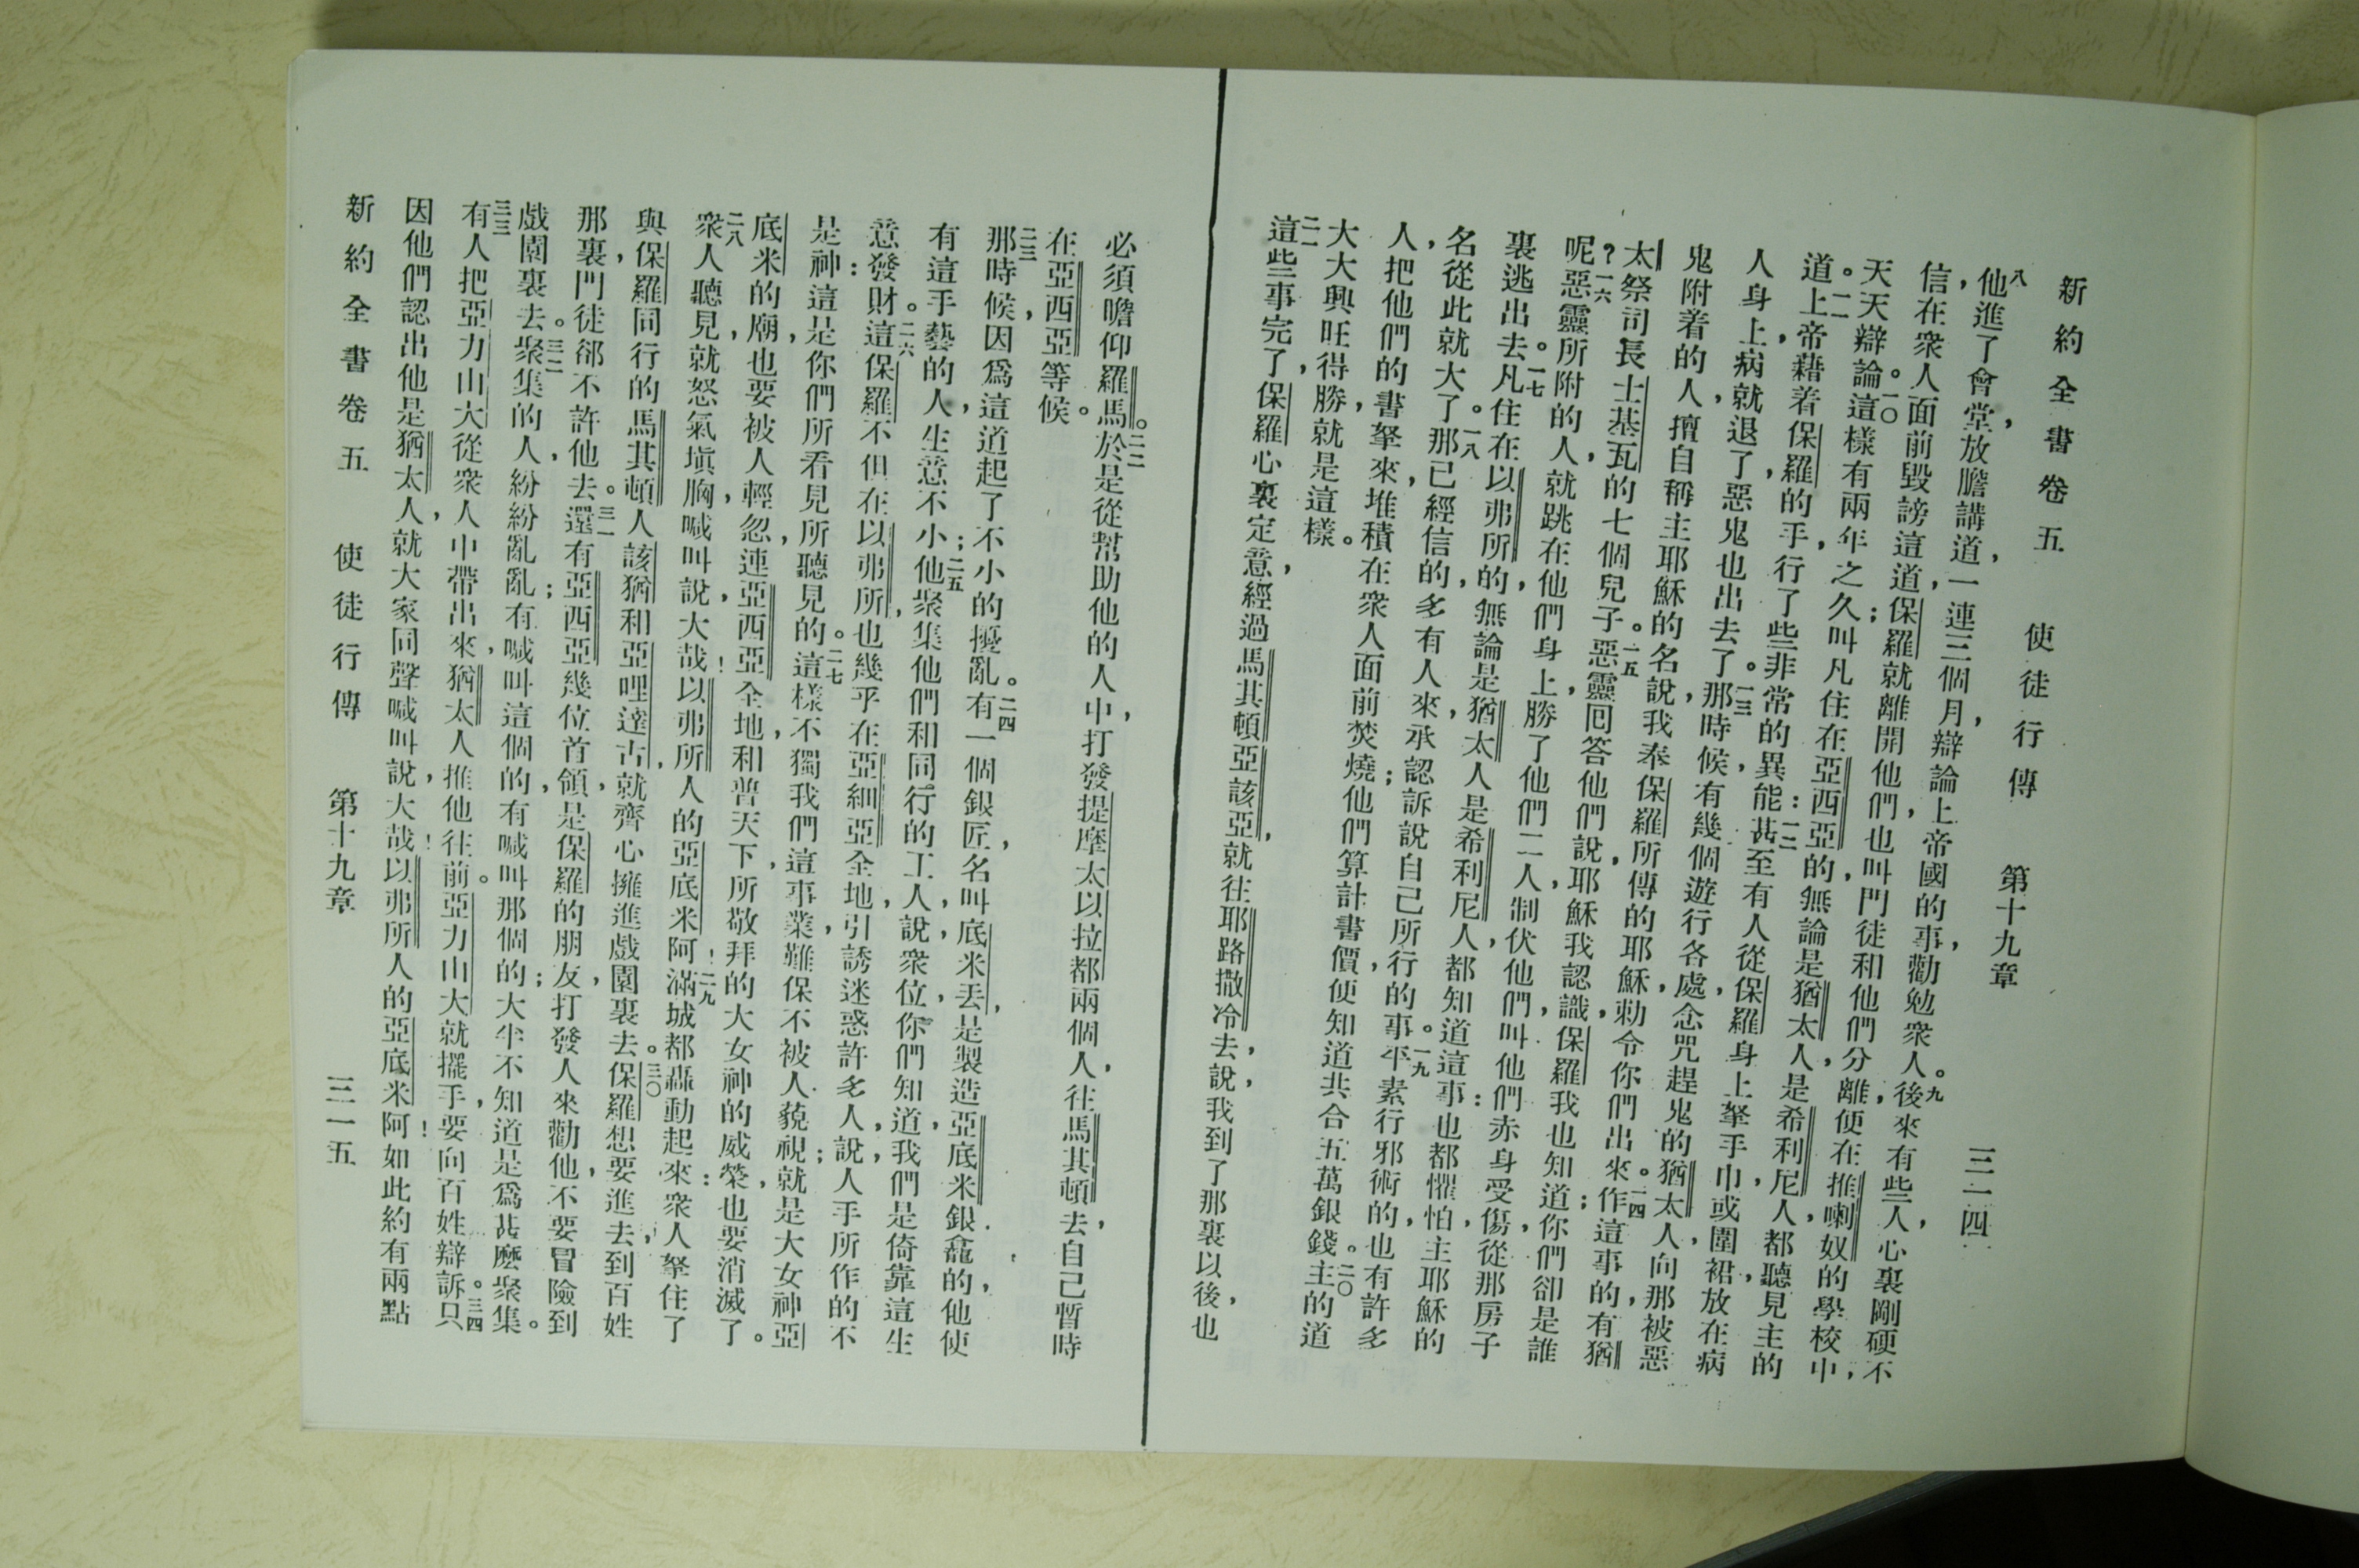 新約全書卷五　使徒行傳　第十九章　三一四
八他進了會堂，放膽講道，一連三個月，辯論上帝國的事，勸勉衆人。九後來有些人，心裏剛硬不
信，在衆人面前毀謗這道，保羅就離開他們，也叫門徒和他們分離，便在推喇奴的學校中，
天天辯論。一〇這樣有兩年之久；叫凡住在亞西亞的，無論是猶太人，是希利尼人，都聽見主的
道。一一上帝藉着保羅的手，行了些非常的異能：一二甚至有人從保羅身上拏手巾，或圍裙，放在病
人身上，病就退了，惡鬼也出去了。一三那時候，有幾個遊行各處，念咒趕鬼的猶太人，向那被惡
鬼附着的人，擅自稱主耶穌的名，說，我奉保羅所傳的耶穌，勅令你們出來。一四作這事的，有猶
太祭司長士基瓦的七個兒子。一五惡靈囘答他們，說，耶穌我認識，保羅我也知道；你們卻是誰
呢？一六惡靈所附的人，就跳在他們身上，勝了他們二人，制伏他們，叫他們赤身受傷，從那房子
裏逃出去。一七凡住在以弗所的，無論是猶太人，是希利尼人，都知道這事：也都懼怕，主耶穌的
名從此就大了。一八那已經信的，多有人來，承認訴說自己所行的事。一九平素行邪術的，也有許多
人，把他們的書拏來，堆積在衆人面前焚燒；他們算計書價，便知道共合五萬銀錢。二〇主的道
大大興旺得勝，就是這樣。
二一這些事完了，保羅心裏定意，經過馬其頓亞該亞，就往耶路撒冷去，說，我到了那裏以後，也
必須瞻仰羅馬。二二於是從幫助他的人中，打發提摩太以拉都兩個人，往馬其頓去，自己暫時
在亞西亞等候。
二三那時候，因爲這道起了不小的擾亂。二四有一個銀匠，名叫底米丟，是製造亞底米銀龕的，他使
有這手藝的人，生意不小；二五他聚集他們和同行的工人，說，衆位，你們知道，我們是倚靠這生
意發財。二六這保羅不但在以弗所，也幾乎在亞細亞全地，引誘迷惑許多人，說，人手所作的不
是神：這是你們所看見所聽見的。二七這樣不獨我們這事業，難保不被人藐視；就是大女神亞
底米的廟，也要被人輕忽，連亞西亞全地，和普天下，所敬拜的大女神的威榮，也要消滅了。
二八衆人聽見，就怒氣塡胸，喊叫說，大哉！以弗所人的亞底米阿！二九滿城都轟動起來：衆人拏住了
與保羅同行的馬其頓人，該猶和亞哩達古，就齊心擁進戲園裏去。三〇保羅想要進去，到百姓
那裏，門徒卻不許他去。三一還有亞西亞幾位首領，是保羅的朋友，打發人來勸他，不要冒險到
戲園裏去。三二聚集的人，紛紛亂亂；有喊叫這個的，有喊叫那個的；大半不知道是爲甚麼聚集。
三三有人把亞力山大從衆人中帶出來，猶太人推他往前。亞力山大就擺手，要向百姓辯訴。三四只
因他們認出他是猶太人，就大家同聲喊叫說，大哉！以弗所人的亞底米阿！如此約有兩點
新約全書卷五　使徒行傳　第十九章　三一五